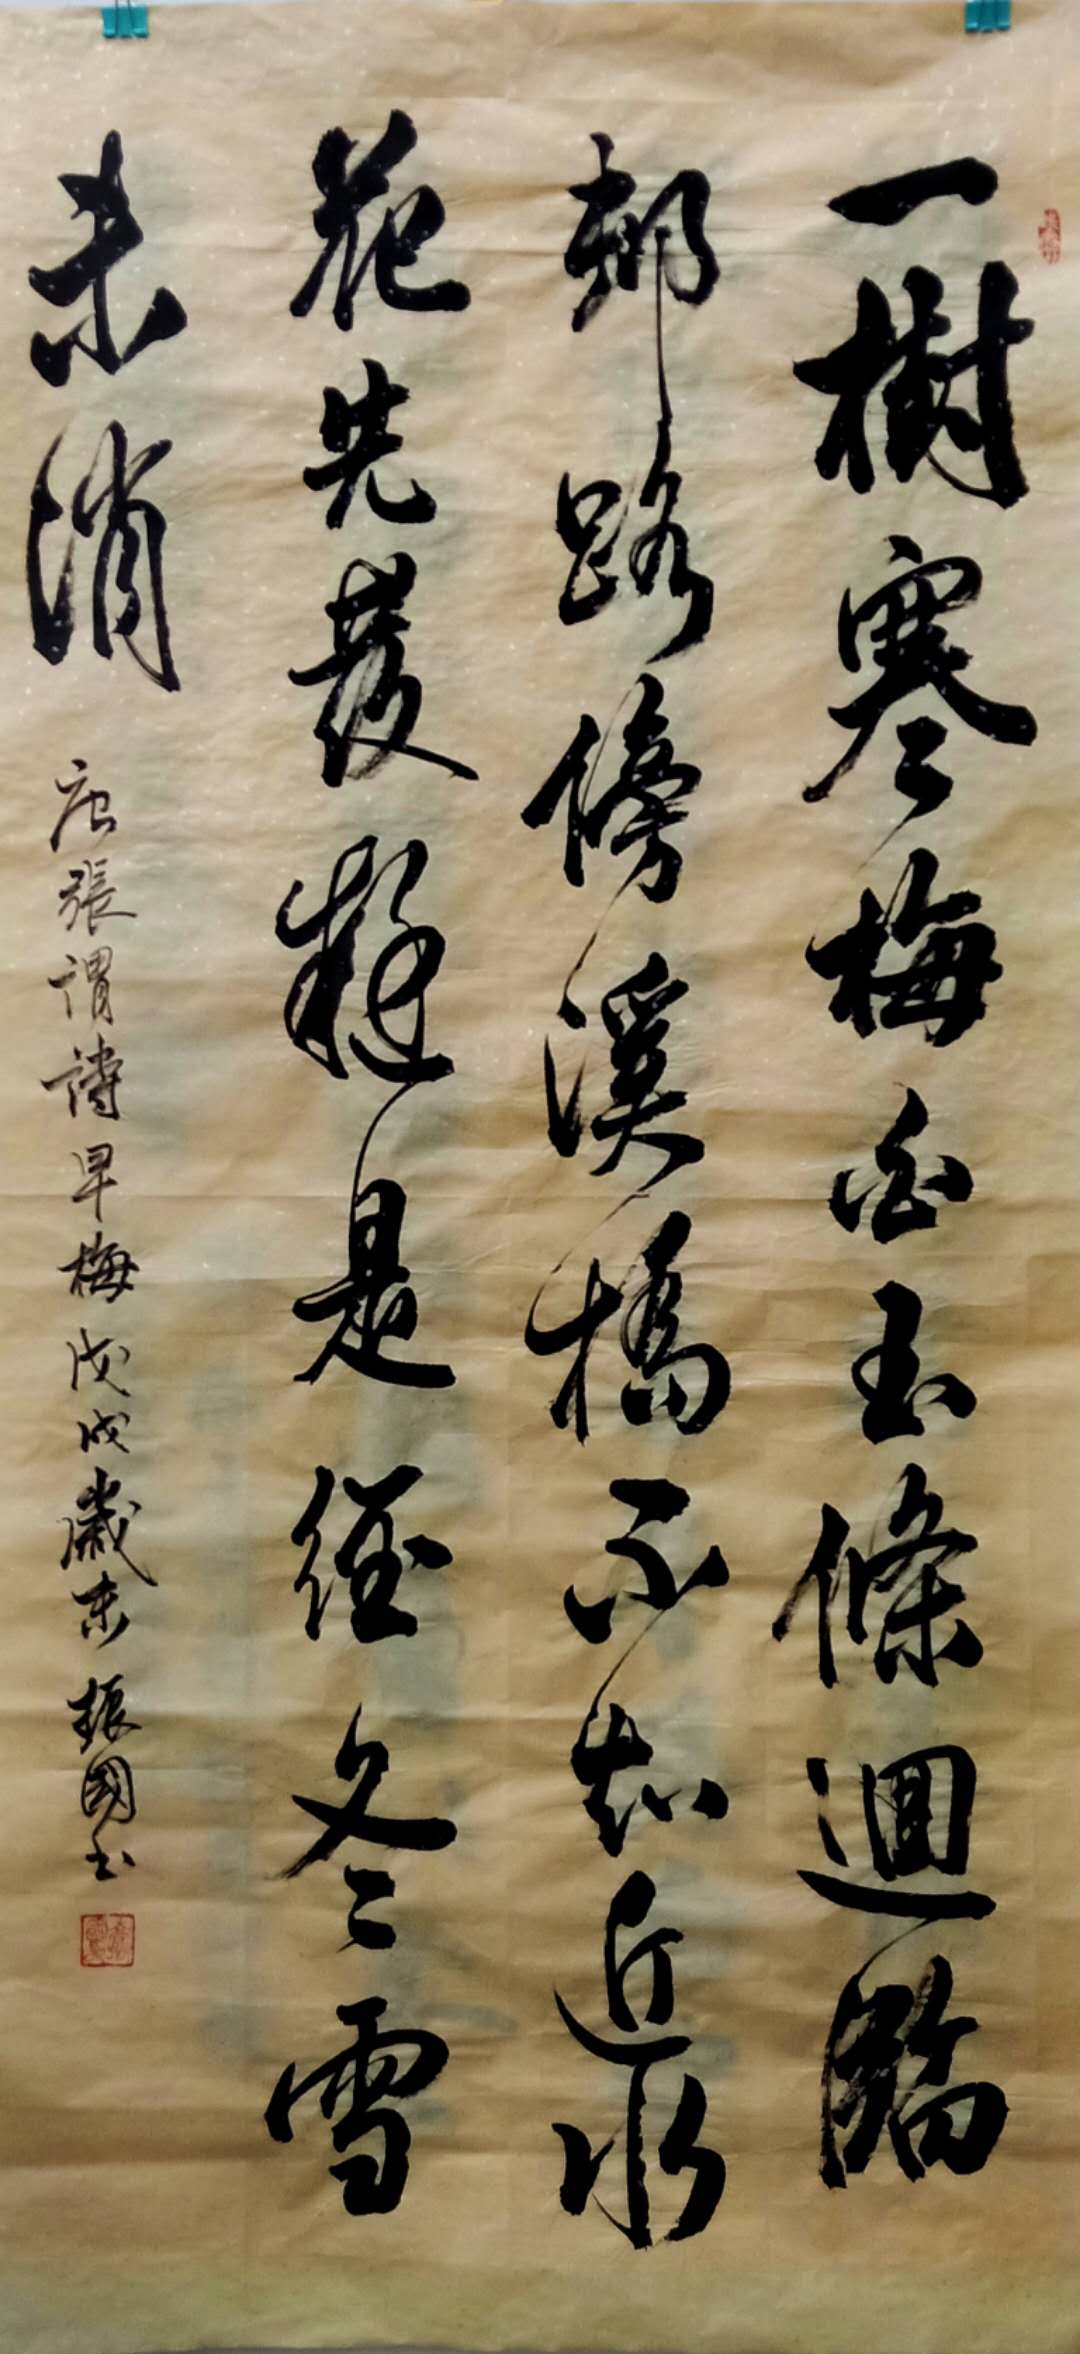 一樹寒梅白玉條迴臨
邨路傍溪橋不知近水
花先發疑是經冬雪
未消
唐張謂詩早梅戊戌歲末振國书